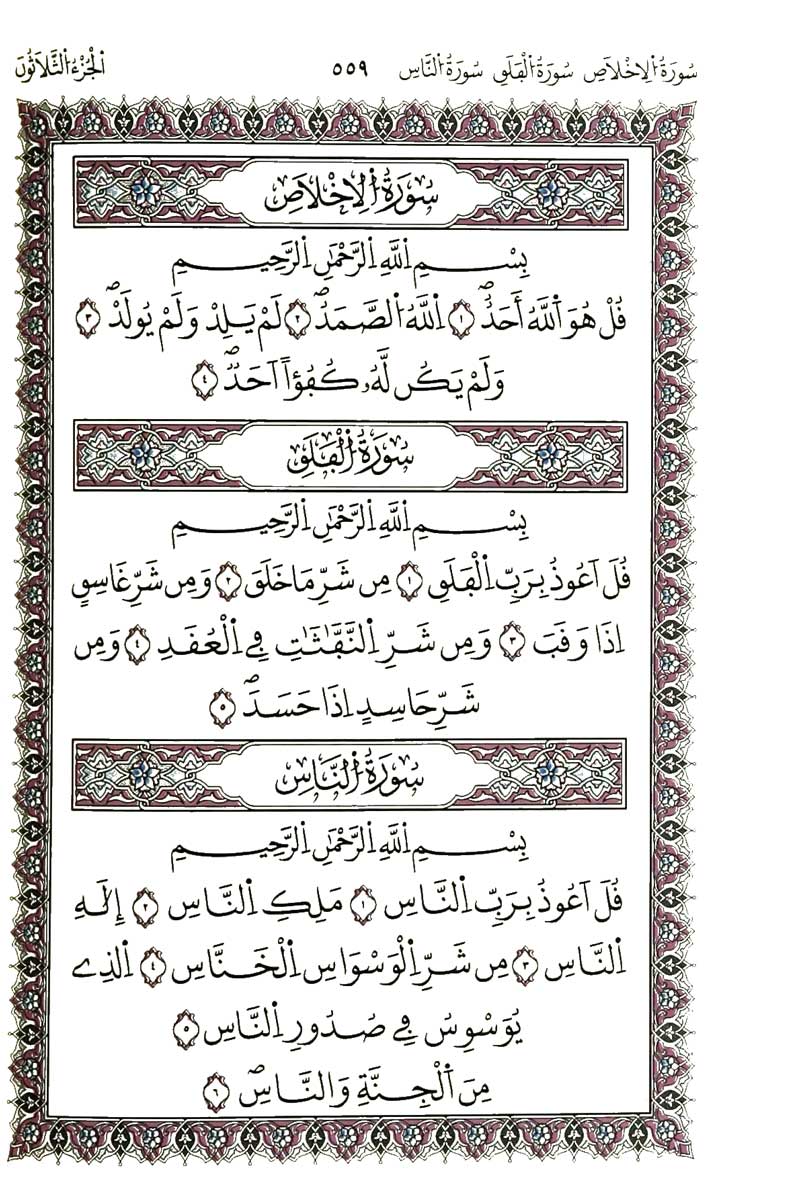 سُورَةُ الِاخْلَاصِ سُورَةُ الْفَلَقِ سُورَةُ النَّاسِ ٥٥٩ الْجُزْءُ الثَّلَاثُونَ
سُورَةُ الِاخْلَاصِ
بِسْمِ اللَّهِ الرَّحْمَٰنِ الرَّحِيمِ
قُلْ هُوَ اَللَّهُ أَحَدٌ ١ اَللَّهُ الصَّمَدُ ٢ لَمْ يَلِدْ وَلَمْ يُولَدْ ٣
وَلَمْ يَكُن لَّهُۥ كُفُؤاً اَحَدٌ ٤
سُورَةُ الْفَلَقِ
بِسْمِ اللَّهِ الرَّحْمَٰنِ الرَّحِيمِ
قُلَ اَعُوذُ بِرَبِّ اِلْفَلَقِ ١ مِن شَرِّ مَا خَلَقَ ٢ وَمِن شَرِّ غَاسِقٍ
اِذَا وَقَبَ ٣ وَمِن شَرِّ اِلنَّفَّٰثَٰتِ فِے اِلْعُقَدِ ٤ وَمِن
شَرِّ حَاسِدٍ اِذَا حَسَدَ ٥
سُورَةُ النَّاسِ
بِسْمِ اللَّهِ الرَّحْمَٰنِ الرَّحِيمِ
قُلَ اَعُوذُ بِرَبِّ اِلنَّاسِ ١ مَلِكِ اِلنَّاسِ ٢ إِلَٰهِ
اِلنَّاسِ ٣ مِن شَرِّ اِلْوَسْوَاسِ اِلْخَنَّاسِ ٤ اِلذِے
يُوَسْوِسُ فِے صُدُورِ اِلنَّاسِ ٥
مِنَ اَلْجِنَّةِ وَالنَّاسِ ٦